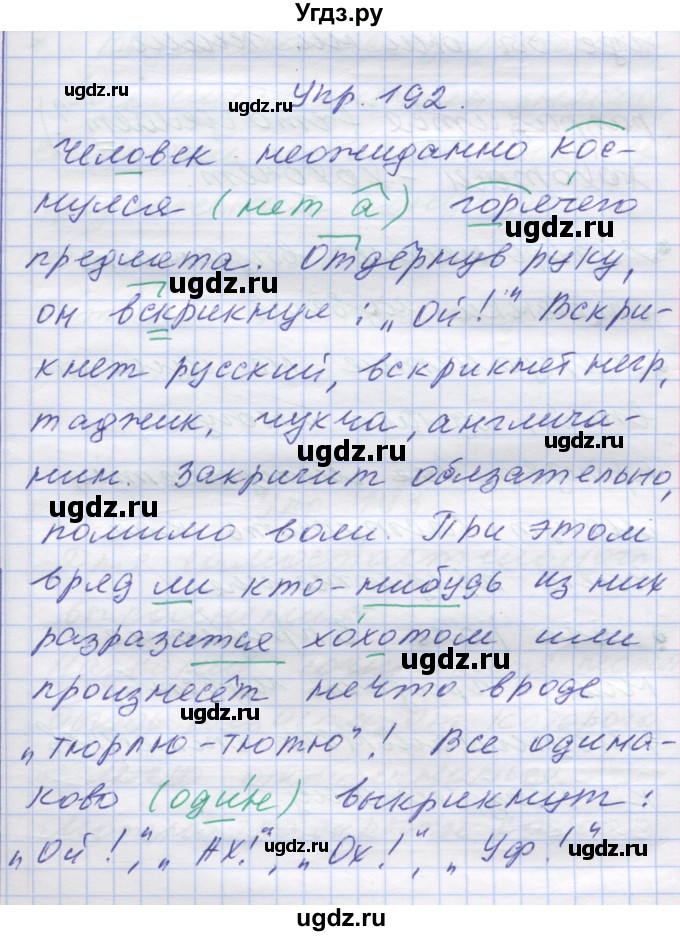 Угдз.ру
ugdz.ru
ugdz.ru
ugdz.ru
Упр. 192.
Человек неожиданно кос-
нулся (нет а) горячего
ugdz.ru
предмета. Отдёрнув руку,
ugdz.ru
он вскрикнул: „Ой!" Вскри-
ugdz.ru
кнет русский, вскрикнет негр,
таджик, чукча, англича-
ugdz.ru
ugdz.ru
нин. Закричит обязательно,
ugdz.ru
помимо воли. При этом
вряд ли кто-нибудь из них
разразится хохотом или
ugdz.ru
произнесёт нечто вроде
ugdz.ru
„тюрлю-тютю"! Все одина-
ково (один) выкрикнут:
„Ой!", „Ах!", „Ох!", „Уф!"
ugdz.ru
ugdz.ru
ugdz.ru